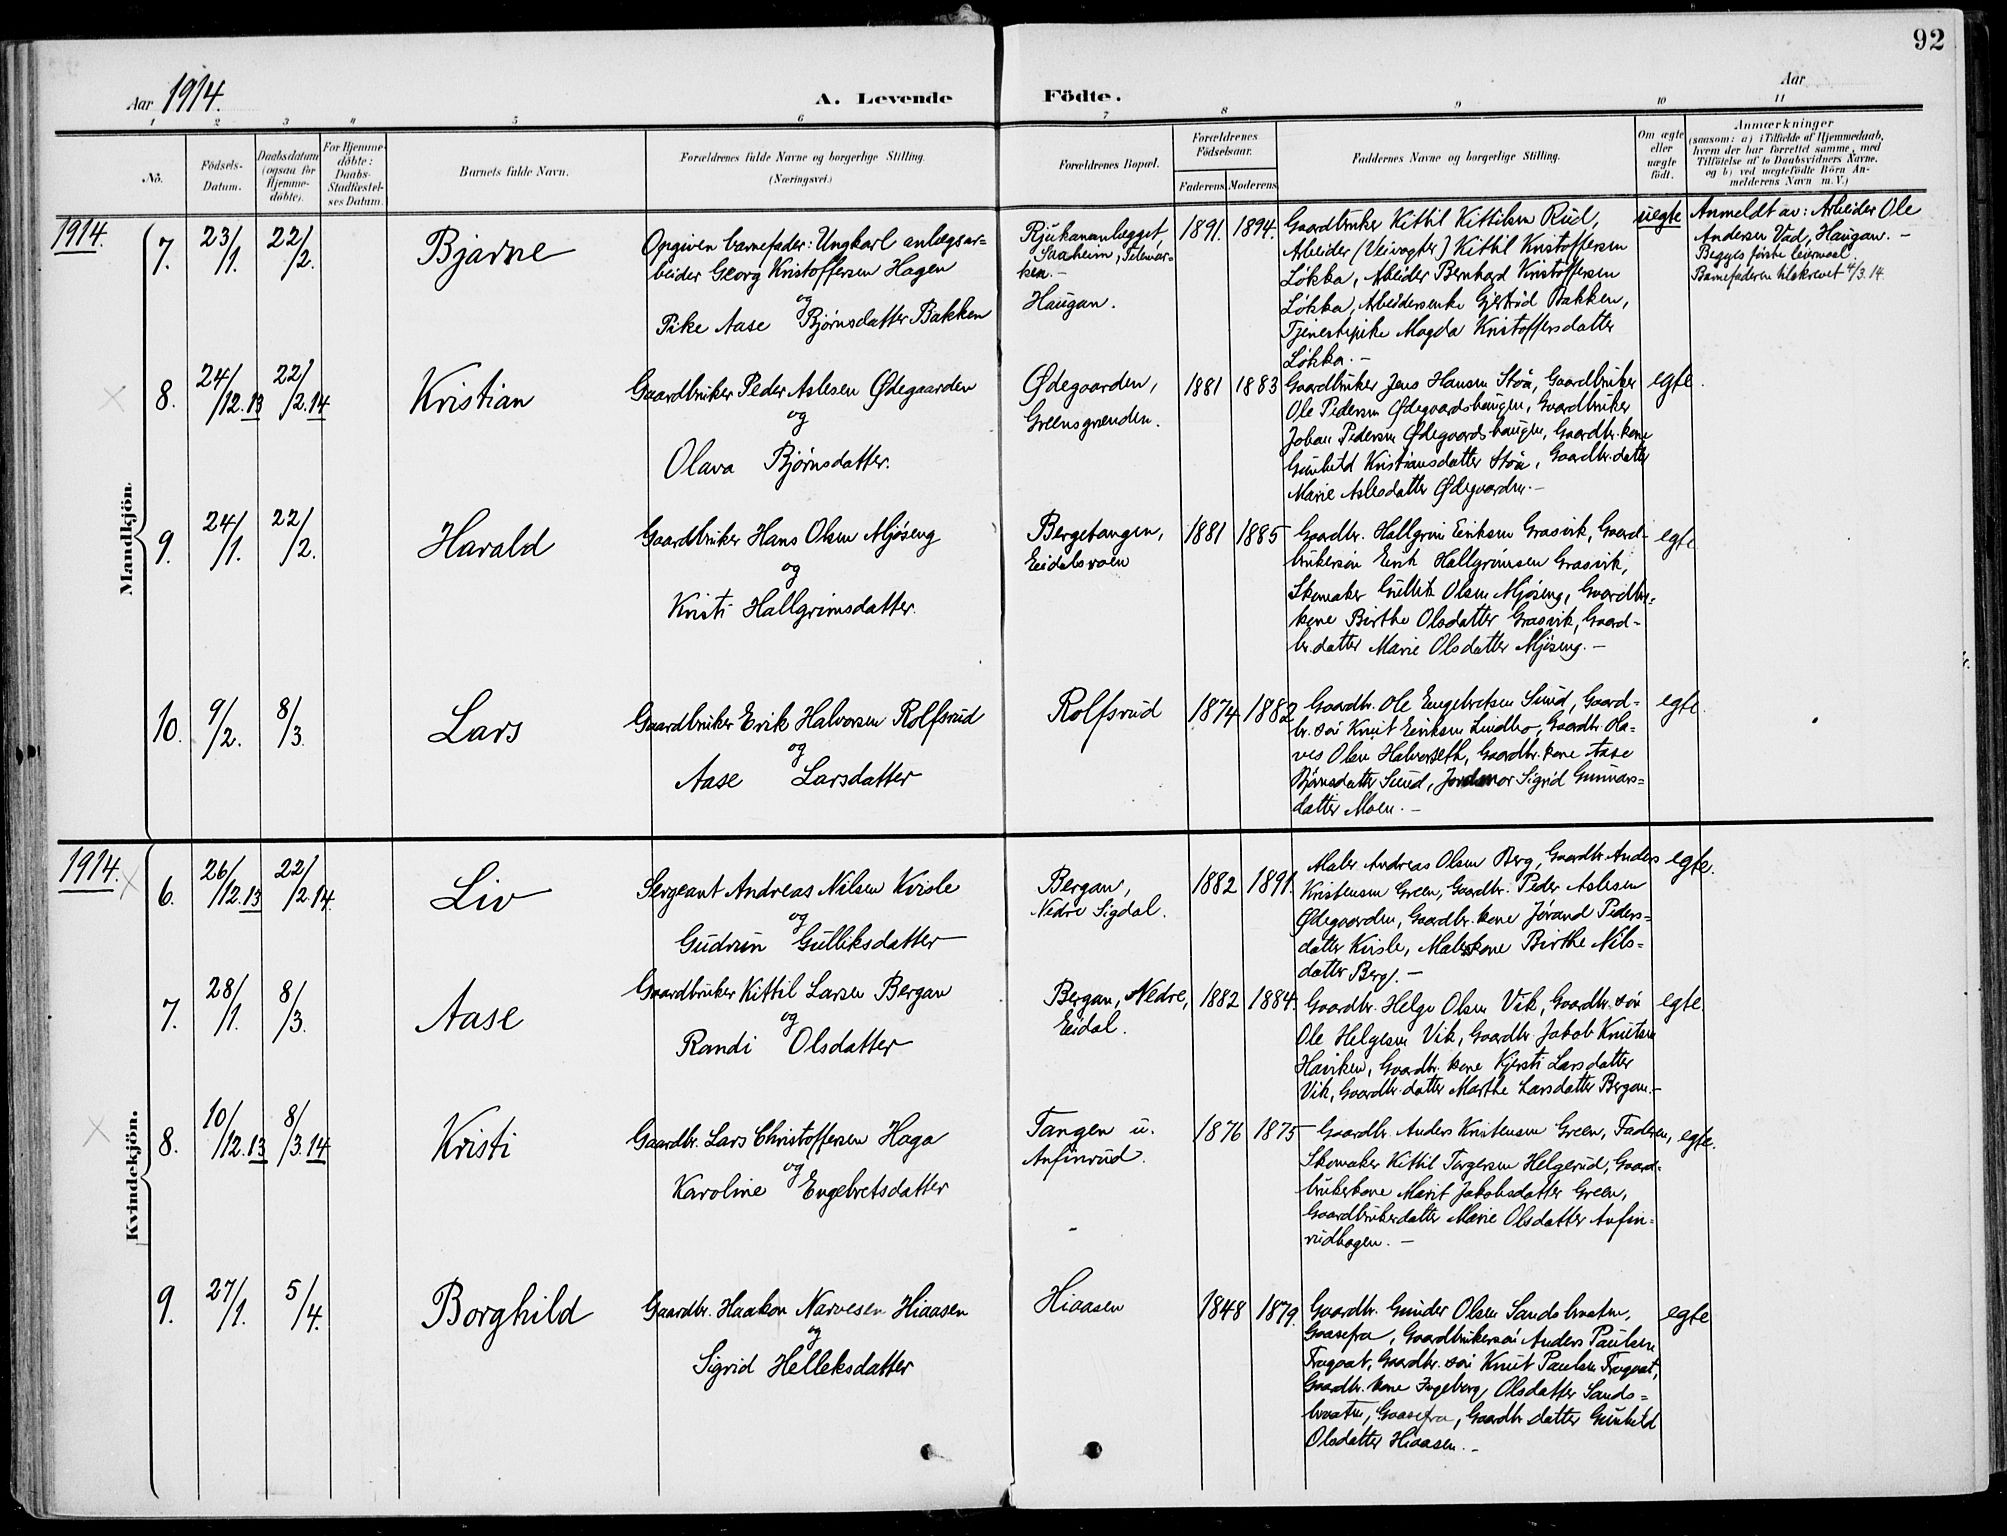 92
Aar 1914.
A. Levende Födte.
Aar
1 2 3 4 5 6 7 8 9 10 11
No.
Födsels-
Datum.
Daabsdatum
(ogsaa for
Hjemme-
döbte).
For Hjemme-
döbte:
Daabs-
Stadfæstel-
ses Datum.
Barnets fulde Navn.
Forældrenes fulde Navne og borgerlige Stilling.
(Næringsvei.)
Forældrenes Bopæl.
Forældrenes
Födselsaar.
Faderens Moderens
Faddernes Navne og borgerlige Stilling.
Om ægte
eller
uægte
födt.
Anmærkninger
(saasom: a) i Tilfælde af Hjemmedaab,
hvem der har forrettet samme, med
Tilföielse af to Daabsvidners Navne.
og b) ved uægtefödte Börn An-
melderens Navn m. V.)
Mandkjön.
1914.
7.
23/1.
22/2.
Bjarne
Opgiven barnefader: Ungkarl anlægsar-
beider Georg Kristoffersen Hagen
og
Pike Aase Bjørnsdatter Bakken
Rjukananlægget,
Saaheim, Telemar-
ken.-
Haugan.
1891. 1894.
Gaardbruker Kittil Kittilsen Rud,
Arbeider (Veivogter) Kittil Kristoffersen
Løkka, Arbeider Bernhard Kristoffersen
Løkka, Arbeidersenke Gjertrud Bakken,
Tjenestepike Magda Kristoffersdatter
Løkka.-
uegte
Anmeldt av: Arbeider Ole
Andersen Vad, Haugan.-
Begges første leiermaal.
Barnefaderen tilskrevet 4/3.14.
8.
24/12.13
22/2.14
Kristian
Gaardbruker Peder Aslesen Ødegaarden
og
Olava Bjørnsdatter.
Ødegaarden,
Greensgrænden.
1881 1883
Gaardbruker Jens Hansen Støa, Gaardbruker
Ole Pedersen Ødegaardshaugen, Gaardbruker
Johan Pedersen Ødegaardshaugen, Gaardbr.kone
Gunhild Kristiansdatter Støa, Gaardbr.datter
Marie Aslesdatter Ødegaarden.-
egte.
9.
24/1.
22/2.
Harald
Gaardbruker Hans Olsen Mjøseng
og
Kristi Hallgrimsdatter.
Bergetangen,
Eidalsvoen
1881 1885
Gaardbr. Hallgrim Eriksen Grasvik, Gaard-
brukersøn Erik Hallgrimsen Grasvik,
Skomaker Gullik Olsen Mjøseng, Gaardbr.-
kone Birthe Olsdatter Grasvik, Gaard-
br.datter Marie Olsdatter Mjøseng.-
egte
10.
9/2.
8/3.
Lars
Gaardbruker Erik Halvorsen Rolfsrud
og
Aase Larsdatter
Rolfsrud
1874 1882
Gaardbr. Ole Engebretsen Sund, Gaard-
br. søn Knut Eriksen Lindbo, Gaardbr. Ola-
ves Olsen Halvorseth, Gaardbr.kone Aase
Bjørnsdatter Sund, Jordmor Sigrid Gunnars-
datter Moen.-
egte.
Kvindekjön.
1914.
6.
26/12.13
22/2.14.
Liv
Sergeant Andreas Nilsen Kvisle
og
Gudrun Gulliksdatter
Bergan,
Nedre Sigdal.
1882 1891.
Maler Andreas Olsen Berg, Gaardbr. Anders
Kristensen Green, Gaardbr. Peder Aslesen
Ødegaarden, Gaardbr.kone Jørand Peders-
datter Kvisle, Malerkone Birthe Nils-
datter Berg.-
egte.
7.
28/1.
8/3.
Aase
Gaardbruker Kittil Larsen Bergan
og
Randi Olsdatter
Bergan, Nedre,
Eidal.
1882 1884.
Gaardbr. Helge Olsen Vik, Gaardbr. søn
Ole Helgesen Vik, Gaardbr. Jakob Knutsen
Haviken, Gaardbr. kone Kjersti Larsdatter
Vik, Gaardbr.datter Marthe Larsdatter Bergan.-
egte
8.
10/12.13
8/3.14
Kristi
Gaardbr. Lars Christoffersen Haga
og
Karoline Engebretsdatter
Tangen u.
Anfinrud.
1876 1875
Gaardbr. Anders Kristensen Green, Faderen,
Skomaker Kittil Torgersen Helgerud, Gaard-
brukerkone Marit Jakobsdatter Green,
Gaardbrukerdatter Marie Olsdatter Anfin-
rudhagen.-
egte.
9.
27/1.
5/4.
Borghild
Gaardbr. Haakon Narvesen Hiaasen
og
Sigrid Helleksdatter
Hiaasen
1848 1879.
Gaardbr. Gunder Olsen Sandsbraaten,
Gaasefra, Gaardbrukersøn Anders Paulsen
Frøgaat, Gaardbr. søn Knut Paulsen Frøgaat,
Gaardbr. kone Ingeborg Olsdatter Sands-
braaten, Gaasefra, Gaardbr.datter Gunhild
Olsdatter Hiaasen.-
egte